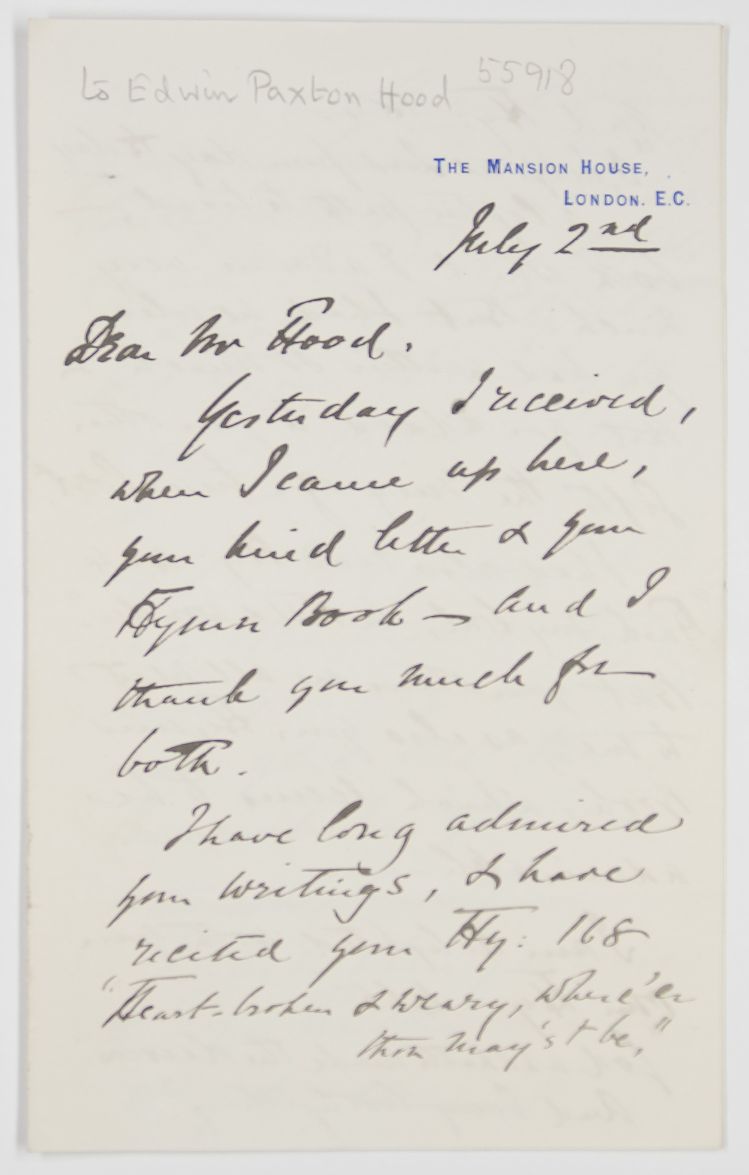 to Edwin Paxton Hood 55918
THE MANSION HOUSE,
LONDON. E.C.
July 2nd
Dear Mr Hood.
Yesterday I received,
when I came up here,
your kind letter & your
Hymn Book – and I
thank you much for
both.
I have long admired
your writings, & have
recited your Hy: 168
"Heart-broken & weary, where'er
thou may'st be,"